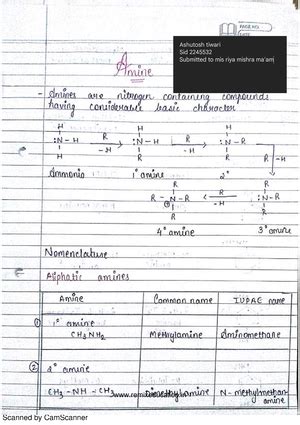 PAGE NO.
DATE
Ashutosh tiwari
Sid 2245532
Submitted to mis riya mishra ma'am
Amine
- Amines are nitrogen containing compounds
having considerable basic character
H H H
:N - H R :N - H R :N - R
- H - H
H R R
R - H
Ammonia 1° amine 2°
R R
R - N - R R :N - R
⊕ - H
R R
4° amine 3° amine
Nomenclature
Aliphatic amines
Amine Common name IUPAC name
① 1° amine
CH₃NH₂ Methylamine Aminomethane
② 2° amine
CH₃ - NH - CH₃ Dimethylamine N-methylmethan
amine
Scanned by CamScanner